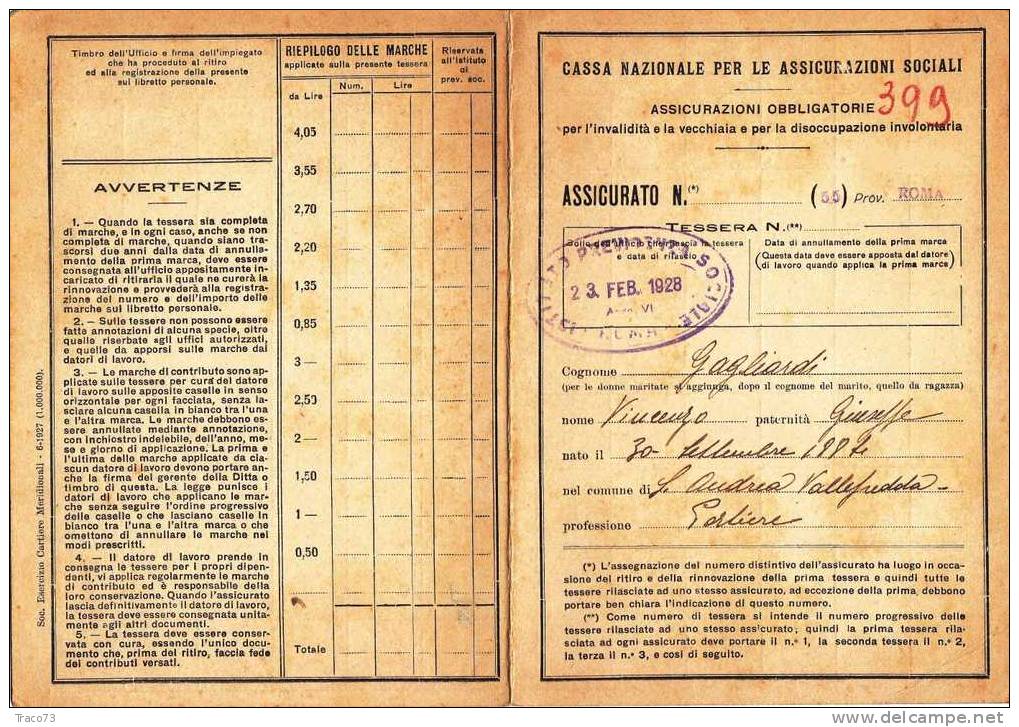 Timbro dell'Ufficio e firma dell'impiegato
che ha proceduto al ritiro
ed alla registrazione della presente
sul libretto personale.
AVVERTENZE
1. — Quando la tessera sia completa
di marche, e in ogni caso, anche se non
completa di marche, quando siano tra-
scorsi due anni dalla data di annulla-
mento della prima marca, deve essere
consegnata all'ufficio appositamente in-
caricato di ritirarla il quale ne curerà la
rinnovazione e provvederà alla registra-
zione del numero e dell'importo delle
marche sul libretto personale.
2. — Sulle tessere non possono essere
fatte annotazioni di alcuna specie, oltre
quelle riserbate agli uffici autorizzati,
e quelle da apporsi sulle marche dai
datori di lavoro.
3. — Le marche di contributo sono ap-
plicate sulle tessere per cura del datore
di lavoro sulle apposite caselle in senso
orizzontale per ogni facciata, senza la-
sciare alcuna casella in bianco tra l'una
e l'altra marca. Le marche debbono es-
sere annullate mediante annotazione,
con inchiostro indelebile, dell'anno, me-
se e giorno di applicazione. La prima e
l'ultima delle marche applicate da cia-
scun datore di lavoro devono portare an-
che la firma del gerente della Ditta o
timbro di questa. La legge punisce i
datori di lavoro che applicano le mar-
che senza seguire l'ordine progressivo
delle caselle o che lasciano caselle in
bianco tra l'una e l'altra marca o che
omettono di annullare le marche nei
modi prescritti.
4. — Il datore di lavoro prende in
consegna le tessere per i propri dipen-
denti, vi applica regolarmente le marche
di contributo ed è responsabile della
loro conservazione. Quando l'assicurato
lascia definitivamente il datore di lavoro,
la tessera deve essere consegnata unita-
mente agli altri documenti.
5. — La tessera deve essere conser-
vata con cura, essendo l'unico docu-
mento che, prima del ritiro, faccia fede
dei contributi versati.
Soc. Esercizio Cartiere Meridionali - 6-1927 (1.000.000).
RIEPILOGO DELLE MARCHE
applicate sulla presente tessera
Riservata
all'Istituto
di
prev. soc.
da Lire
Num.
Lire
4,05
3,55
2,70
2,20
1,35
0,85
3 —
2,50
2 —
1,50
1 —
0,50
Totale
CASSA NAZIONALE PER LE ASSICURAZIONI SOCIALI
ASSICURAZIONI OBBLIGATORIE 399
per l'invalidità e la vecchiaia e per la disoccupazione involontaria
ASSICURATO N.(*) (55) Prov. ROMA
TESSERA N.(**)
Bollo dell'ufficio che rilascia la tessera
e data di rilascio
Data di annullamento della prima marca
(Questa data deve essere apposta dal datore
di lavoro quando applica la prima marca)
ISTITUTO PREVIDENZA SOCIALE
23 FEB. 1928
Anno VI
ROMA
Cognome Gagliardi
(per le donne maritate si aggiunga, dopo il cognome del marito, quello da ragazza)
nome Vincenzo paternità Giuseppe
nato il 30 - Settembre
nel comune di S. Andrea Vallefredda -
professione Portiere
(*) L'assegnazione del numero distintivo dell'assicurato ha luogo in occa-
sione del ritiro e della rinnovazione della prima tessera e quindi tutte le
tessere rilasciate ad uno stesso assicurato, ad eccezione della prima, debbono
portare ben chiara l'indicazione di questo numero.
(**) Come numero di tessera si intende il numero progressivo delle
tessere rilasciate ad uno stesso assicurato; quindi la prima tessera rila-
sciata ad ogni assicurato deve portare il n.º 1, la seconda tessera il n.º 2,
la terza il n.º 3, e così di seguito.
Traco73
delcampe.net